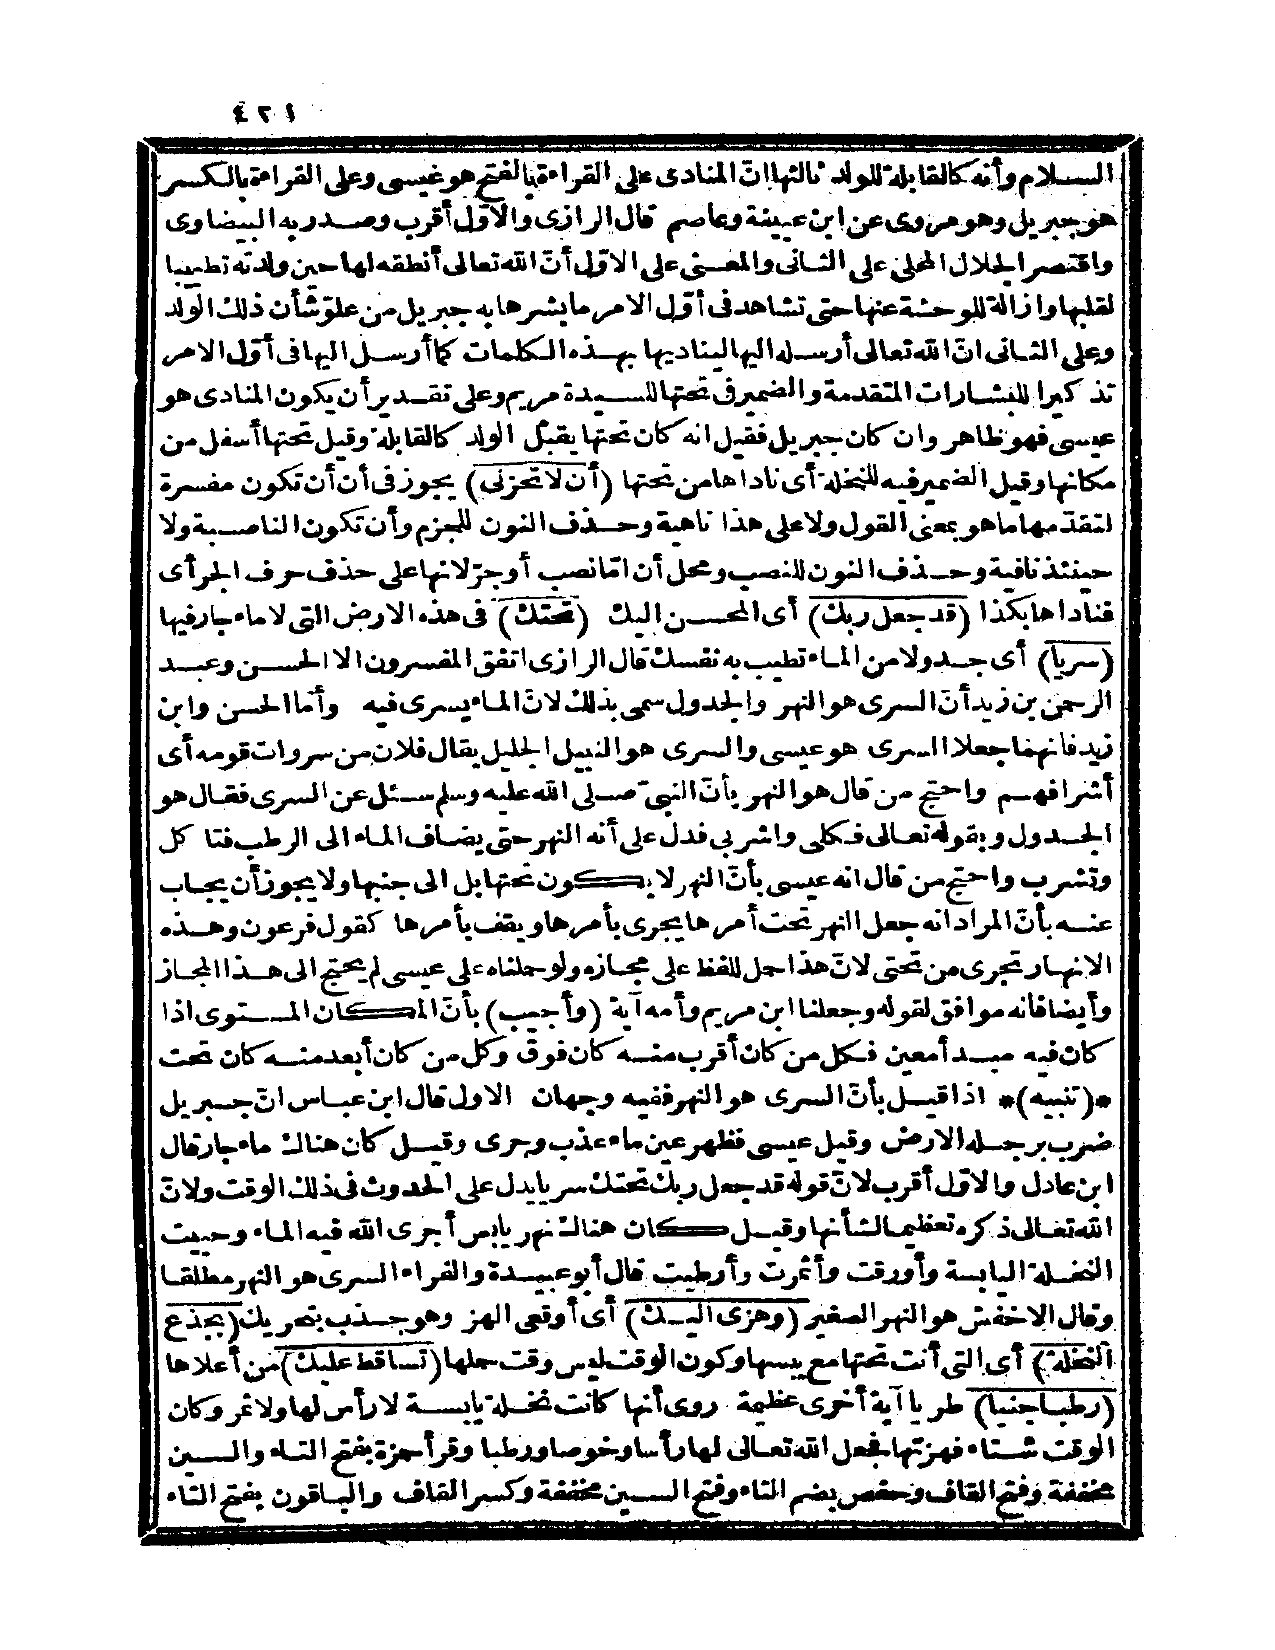 ٤٢١
السلام وأنه كالقابلة للولد ثالثها ان المنادى على القراءة بالفتح هو عيسى وعلى القراءة بالكسر
هو جبريل وهو مروى عن ابن عيينة وعاصم قال الرازى والاوّل أقرب وصدر به البيضاوى
واقتصر الجلال المحلى على الثانى والمعنى على الاوّل أنّ الله تعالى أنطقه لها حين ولدته تطييبا
لقلبها وازالة للوحشة عنها حتى تشاهد فى أوّل الامر ما بشرها به جبريل من علوّ شأن ذلك الولد
وعلى الثانى انّ الله تعالى أرسله اليها ليناديها بهذه الكلمات كما أرسل اليها فى أوّل الامر
تذكيرا للبشارات المتقدمة والضمير فى تحتها للسيدة مريم وعلى تقدير أن يكون المنادى هو
عيسى فهو ظاهر وان كان جبريل فقيل انه كان تحتها يقبل الولد كالقابلة وقيل تحتها أسفل من
مكانها وقيل الضمير فيه للنخلة أى ناداها من تحتها (أن لا تحزنى) يجوز فى أن أن تكون مفسرة
لتقدّمها ما هو بمعنى القول ولا على هذا ناهية وحذف النون للجزم وأن تكون الناصبة ولا
حينئذ نافية وحذف النون للنصب ومحل أن امّا نصب أو جرّ لانها على حذف حرف الجر أى
فناداها بكذا (قد جعل ربك) أى المحسن اليك (تحتك) فى هذه الارض التى لا ماء جار فيها
(سريا) أى جدولا من الماء تطيب به نفسك قال الرازى اتفق المفسرون الا الحسن وعبد
الرحمن بن زيد أنّ السرى هو النهر والجدول سمى بذلك لانّ الماء يسرى فيه وأمّا الحسن وابن
زيد فانهما جعلا السرى هو عيسى والسرى هو النبيل الجليل يقال فلان من سروات قومه أى
أشرافهم واحتج من قال هو النهر بأنّ النبىّ صلى الله عليه وسلم سئل عن السرى فقال هو
الجدول وبقوله تعالى فكلى واشربى فدل على أنه النهر حتى يضاف الماء الى الرطب فتأكل
وتشرب واحتج من قال انه عيسى بأنّ النهر لا يكون تحتها بل الى جنبها ولا يجوز أن يجاب
عنه بأنّ المراد انه جعل النهر تحت أمرها يجرى بأمرها ويقف بأمرها كقول فرعون وهذه
الانهار تجرى من تحتى لانّ هذا حمل للفظ على مجازه ولو حملناه على عيسى لم يحتج الى هذا المجاز
وأيضا فانه موافق لقوله وجعلنا ابن مريم وأمه آية (وأجيب) بأنّ المكان المستوى اذا
كان فيه مبدأ معين فكل من كان أقرب منه كان فوق وكل من كان أبعد منه كان تحت
*(تنبيه)* اذا قيل بأنّ السرى هو النهر ففيه وجهان الاول قال ابن عباس انّ جبريل
ضرب برجله الارض وقيل عيسى فظهر عين ماء عذب وجرى وقيل كان هناك ماء جار قال
ابن عادل والاوّل أقرب لانّ قوله قد جعل ربك تحتك سريا يدل على الحدوث فى ذلك الوقت ولانّ
الله تعالى ذكره تعظيما لشأنها وقيل كان هناك نهر يابس أجرى الله فيه الماء وحييت
النخلة اليابسة وأورقت وأثمرت وأرطبت قال أبو عبيدة والفراء السرى هو النهر مطلقا
وقال الاخفش هو النهر الصغير (وهزى اليك) أى أوقعى الهز وهو جذب بتحريك (بجذع
النخلة) أى التى أنت تحتها مع يبسها وكون الوقت ليس وقت حملها (تساقط عليك) من أعلاها
(رطبا جنيا) طريا آية أخرى عظيمة روى أنها كانت نخلة يابسة لا رأس لها ولا ثمر وكان
الوقت شتاء فهزتها فجعل الله تعالى لها رأسا وخوصا ورطبا وقرأ حمزة بفتح التاء والسين
مخففة وفتح القاف وحفص بضم التاء وفتح السين مخففة وكسر القاف والباقون بفتح التاء